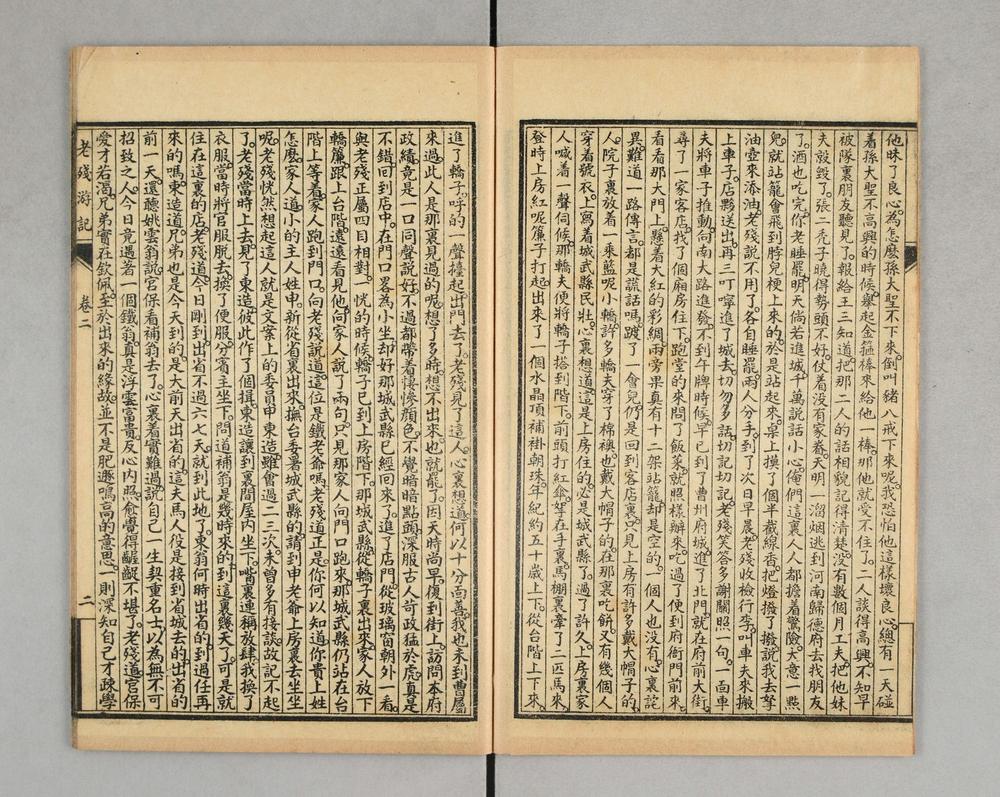 他昧了良心為怎麼孫大聖不下來倒叫豬八戒下來呢我恐怕他這樣壞良心總有一天碰
着孫大聖不高興的時候舉起金箍棒來給他一棒那他就受不住了二人談得高興不知早
被隊裏朋友聽見了報給王三知道把那二人的話相貌記得清楚沒有數個月工夫把他妹
夫毀了張二禿子曉得勢頭不好仗着沒有家眷天明一溜烟逃到河南歸德府去找朋友
了酒也吃完你老睡罷明天倘若進城千萬說話小心俺們這裏人人都擔着驚險大意一點
兒就站籠會飛到脖兒梗上來的於是站起來桌上摸了個半截線香把燈撥了撥說我去拏
油壺來添油老殘說不用了各自睡罷兩人分手到了次日早晨老殘收檢行李叫車夫來搬
上車子店夥送出再三叮嚀進了城去切勿多話切記切記老殘笑答多謝關照一面車
夫將車子推動向南大路進發不到午牌時候早已到了曹州府城進了北門就在府前大街
尋了一家客店找了個廂房住下跑堂的來問了飯菜就照樣辦來吃過了便到府衙門前來
看看那大門上懸着大紅的彩綢兩旁果真有十二架站籠却是空的一個人也沒有心裏詫
異難道一路傳言都是謊話嗎踱了一會兒仍是回到客店裏只見上房有許多戴大帽子的
人院子裏放着一乘藍呢小轎許多轎夫穿了棉襖也戴大帽子的在那裏吃餅又有幾個人
穿着號衣上寫着城武縣民壯心裏想道這是上房住的必是城武縣了過了許久上房裏家
人喊着一聲伺候那轎夫便將轎子搭到階下前頭打紅傘的拏在手裏馬棚裏牽了二匹馬來
登時上房紅呢簾子打起出來了一個水晶頂補褂朝珠年紀約五十歲上下從台階上下來
進了轎子呼的一聲擡起出門去了老殘見了這人心裏想道何以十分面善我也未到曹屬
來過此人是那裏見過的呢想了多時想不出來也就罷了因天時尚早復到街上訪問本府
政績竟是一口同聲說好不過都帶着慘慘顏色不覺暗暗點頭深服古人苛政猛於虎真是
不錯回到店中在門口畧為小坐却好那城武縣已經回來了進了店門從玻璃窗朝外一看
與老殘正屬四目相對一恍的時候轎子已到上房階下那城武縣從轎子裏出來家人放下
轎簾跟上台階遠遠看見他向家人說了兩句只見那家人向門口跑來那城武縣仍站在台
階上等着家人跑到門口向老殘說道這位是鐵老爺嗎老殘道正是你何以知道你貴上姓
怎麼家人道小的主人姓申新從省裏出來撫台委署城武縣的請到申老爺上房裏去坐坐
呢老殘恍然想起這人就是文案上的委員申東造雖會過二三次未曾多有接談故記不起
了老殘當時上去見了東造彼此作了個揖東造讓到裏間屋內坐下嘴裏連稱放肆我換了
衣服當時將官服脫去換了便服分賓主坐下問道補翁是幾時來的到這裏幾天了可是就
住在這裏的店老殘道今日剛到出省不過六七天就到此地了東翁何時出省的到過任再
來的嗎東造道兄弟也是今天到的是大前天出省的這夫馬人役是接到省城去的出省的
前一天還聽姚雲翁說宮保看補翁去了心裏着實難過說自己一生契重名士以為無不可
招致之人今日竟遇着一個鐵翁真是浮雲富貴反心內照愈覺得齷齪不堪了老殘道宮保
愛才若渴兄弟實在欽佩至於出來的緣故並不是肥遯鳴高的意思一則深知自己才疎學
老殘游記
卷二
二